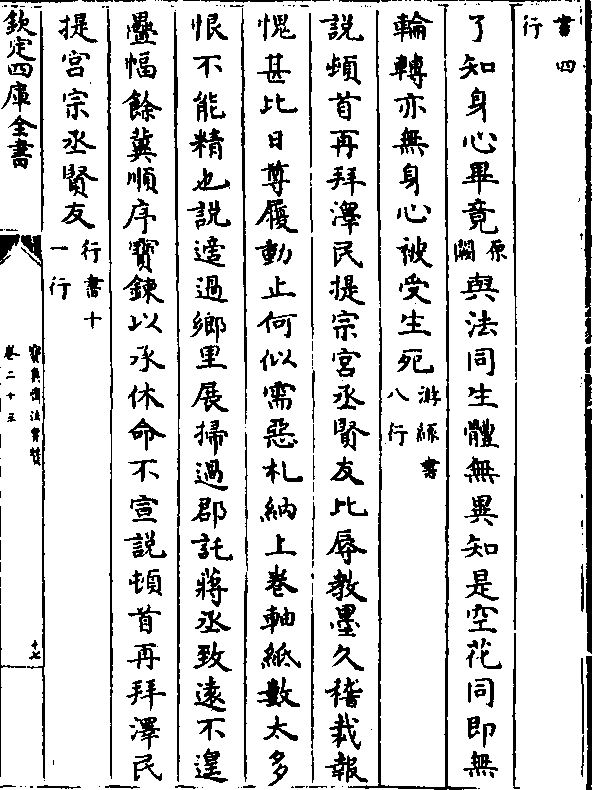 書四
行
了知身心畢竟原闕與法同生體無異知是空花同即無
輪轉亦無身心被受生死游絲書八行
說頓首再拜澤民提宗宮丞賢友比辱教墨久稽裁報
愧甚比日尊履動止何似需惡札納上卷軸紙數太多
恨不能精也說適過鄉里展掃過郡託蔣丞致遠不遑
疊幅餘冀順序寳鍊以承休命不宣說頓首再拜澤民
提宮宗丞賢友行書十一行
欽定四庫全書
寳真齋法書贊
卷二十五
十七